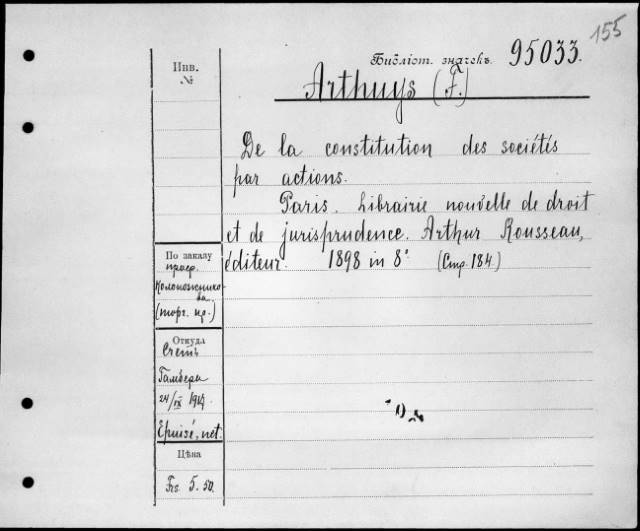 155
Библіот. значекъ 95033.
Инв.
№
Arthuys (F.)
De la constitution des sociétés
par actions.
Paris. Librairie nouvelle de droit
et de jurisprudence. Arthur Rousseau,
éditeur. 1898 in 8° (Стр. 184.)
По заказу
проф.
(торг. пр.)
Откуда
Счетъ
24/IX 1909
Epuisé, net.
Цѣна
Frs. 5.50.